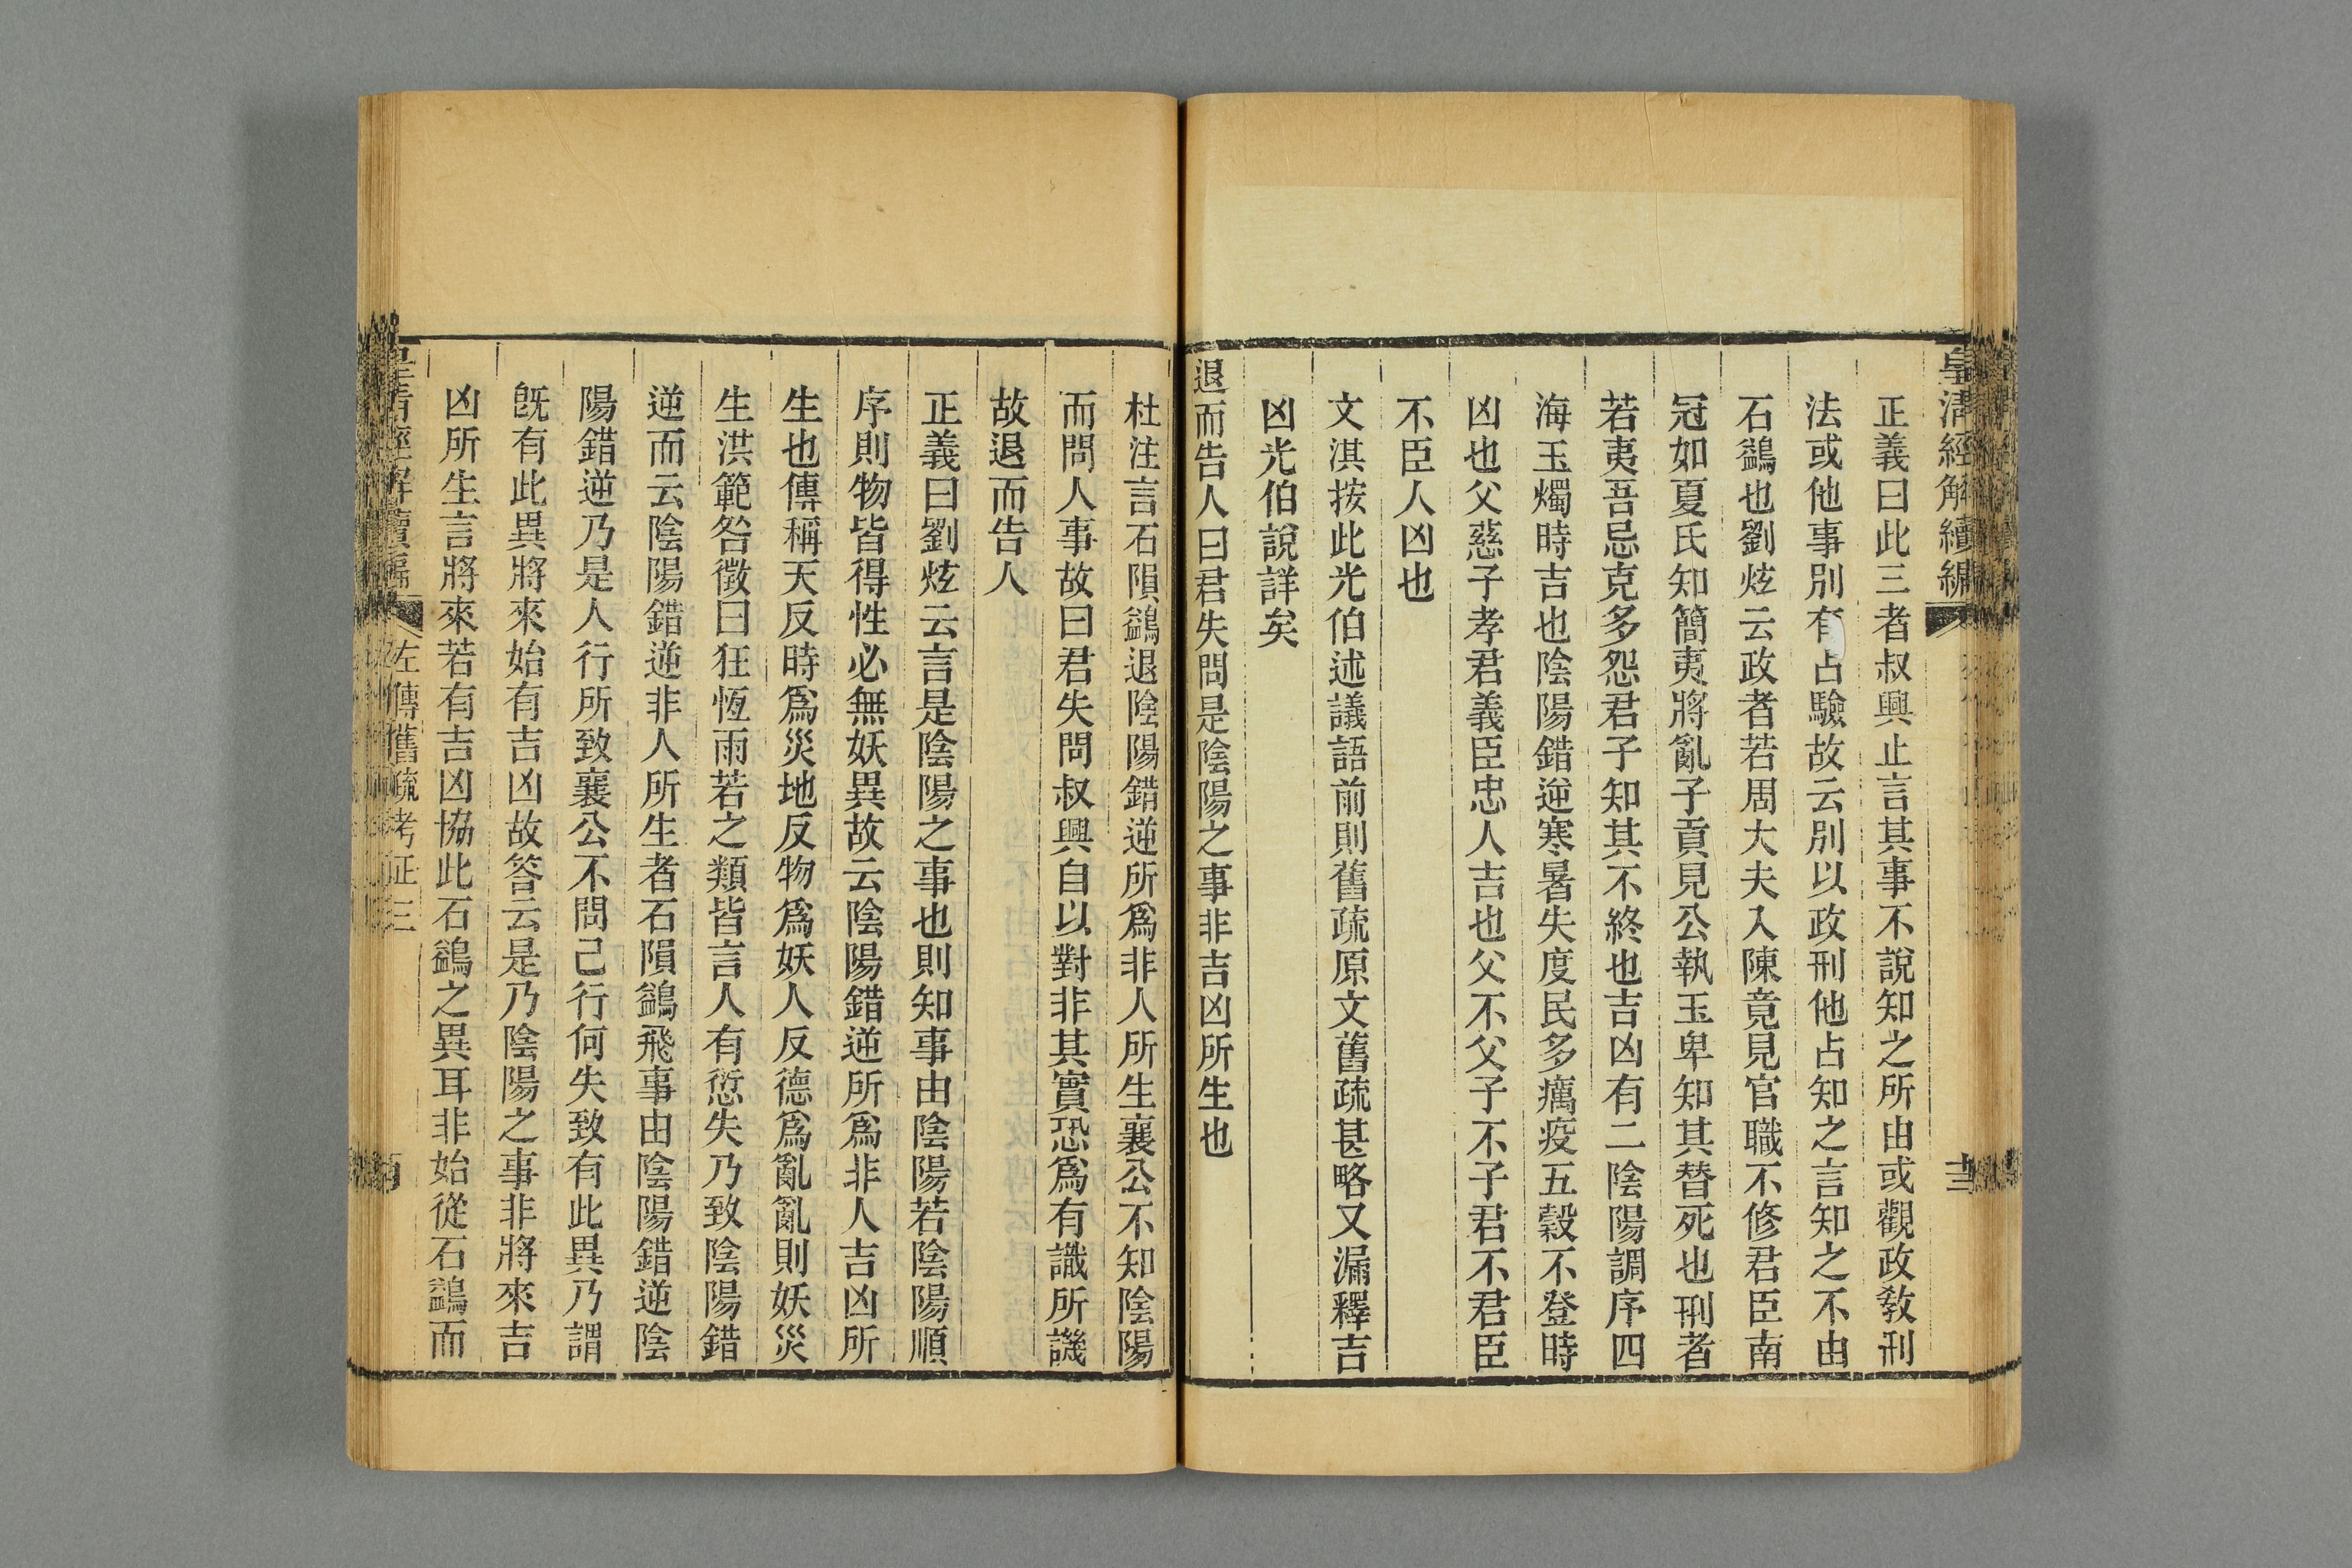 皇清經解續編
十三
正義曰此三者叔興止言其事不說知之所由或觀政敎刑
法或他事別有占驗故云別以政刑他占知之言知之不由
石鷁也劉炫云政者若周大夫入陳竟見官職不修君臣南
冠如夏氏知簡夷將亂子貢見公執玉卑知其替死也刑者
若夷吾忌克多怨君子知其不終也吉凶有二陰陽調序四
海玉燭時吉也陰陽錯逆寒暑失度民多癘疫五穀不登時
凶也父慈子孝君義臣忠人吉也父不父子不子君不君臣
不臣人凶也
文淇按此光伯述議語前則舊疏原文舊疏甚略又漏釋吉
凶光伯說詳矣
退而告人曰君失問是陰陽之事非吉凶所生也
杜注言石隕鷁退陰陽錯逆所爲非人所生襄公不知陰陽
而問人事故曰君失問叔興自以對非其實恐爲有識所譏
故退而告人
正義曰劉炫云言是陰陽之事也則知事由陰陽若陰陽順
序則物皆得性必無妖異故云陰陽錯逆所爲非人吉凶所
生也傳稱天反時爲災地反物爲妖人反德爲亂亂則妖災
生洪範咎徵曰狂恆雨若之類皆言人有愆失乃致陰陽錯
逆而云陰陽錯逆非人所生者石隕鷁飛事由陰陽錯逆陰
陽錯逆乃是人行所致襄公不問己行何失致有此異乃謂
旣有此異將來始有吉凶故答云是乃陰陽之事非將來吉
凶所生言將來若有吉凶協此石鷁之異耳非始從石鷁而
皇清經解續編
左傳舊疏考証三